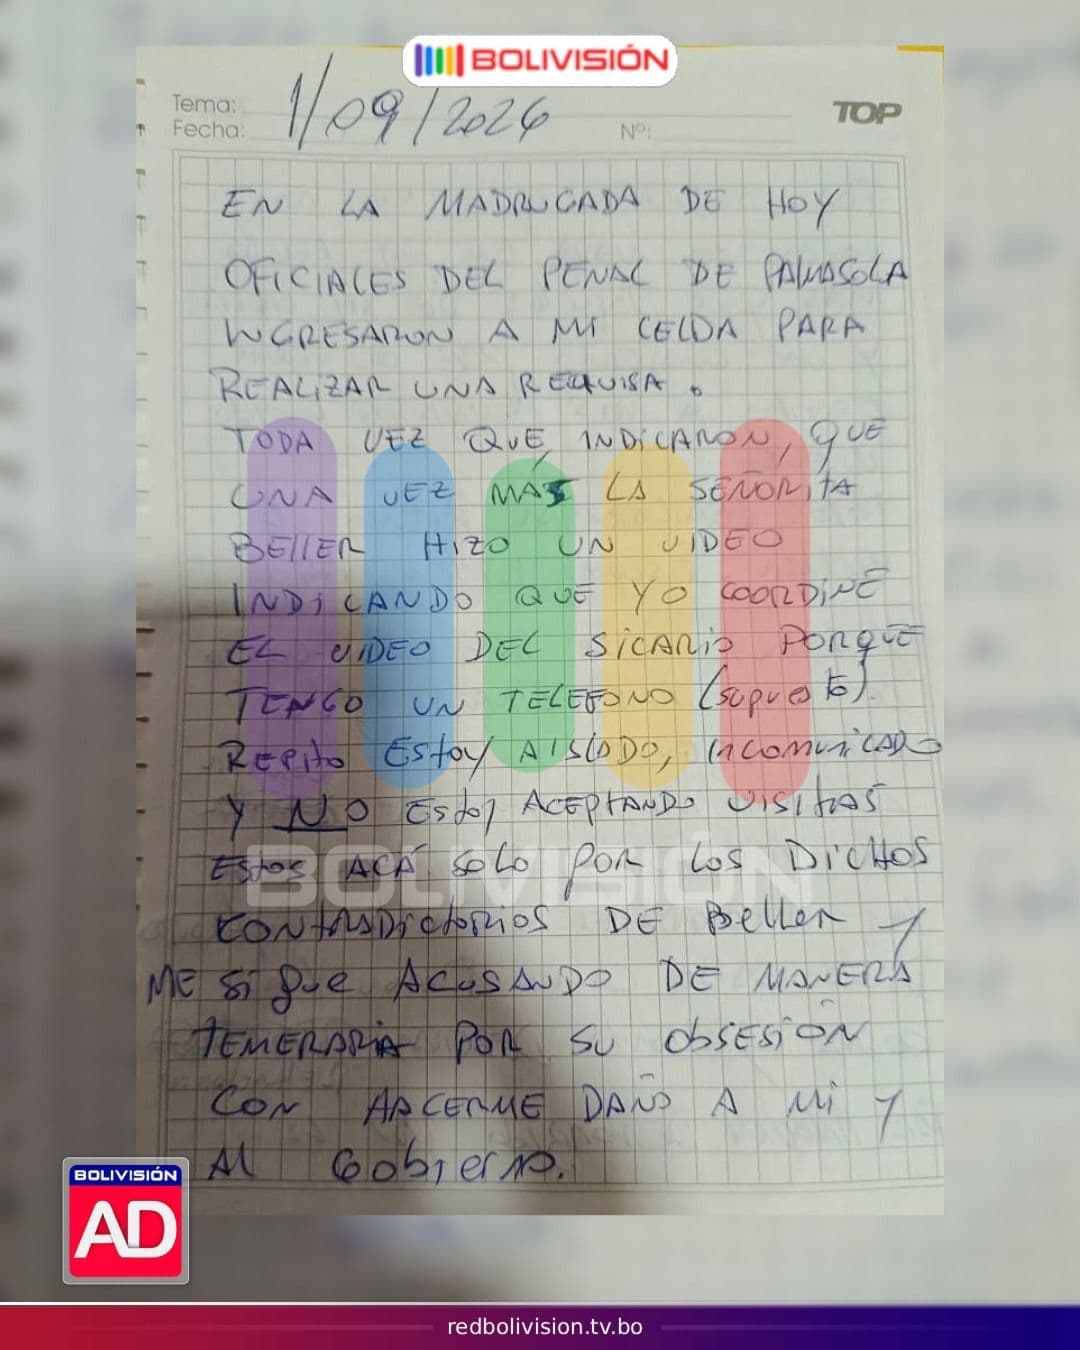 BOLIVISIÓN
Tema:
Fecha: 1/09/2026 Nº: TOP
EN LA MADRUGADA DE HOY
OFICIALES DEL PENAL DE PALMASOLA
INGRESARON A MI CELDA PARA
REALIZAR UNA REQUISA.
TODA VEZ QUE, INDICARON, QUE
UNA VEZ MÁS LA SEÑORITA
BELLER HIZO UN VIDEO
INDICANDO QUE YO COORDINÉ
EL VIDEO DEL SICARIO PORQUE
TENGO UN TELEFONO (supuesto).
REPITO ESTOY AISLADO, INCOMUNICADO
Y NO ESTOY ACEPTANDO VISITAS
ESTOS ACÁ SOLO POR LOS DICHOS
CONTRADICTORIOS DE Beller y
ME SIGUE ACUSANDO DE MANERA
TEMERARIA POR SU OBSESIÓN
CON HACERME DAÑO A MI Y
AL Gobierno.
BOLIVISIÓN
BOLIVISIÓN
AD
redbolivision.tv.bo